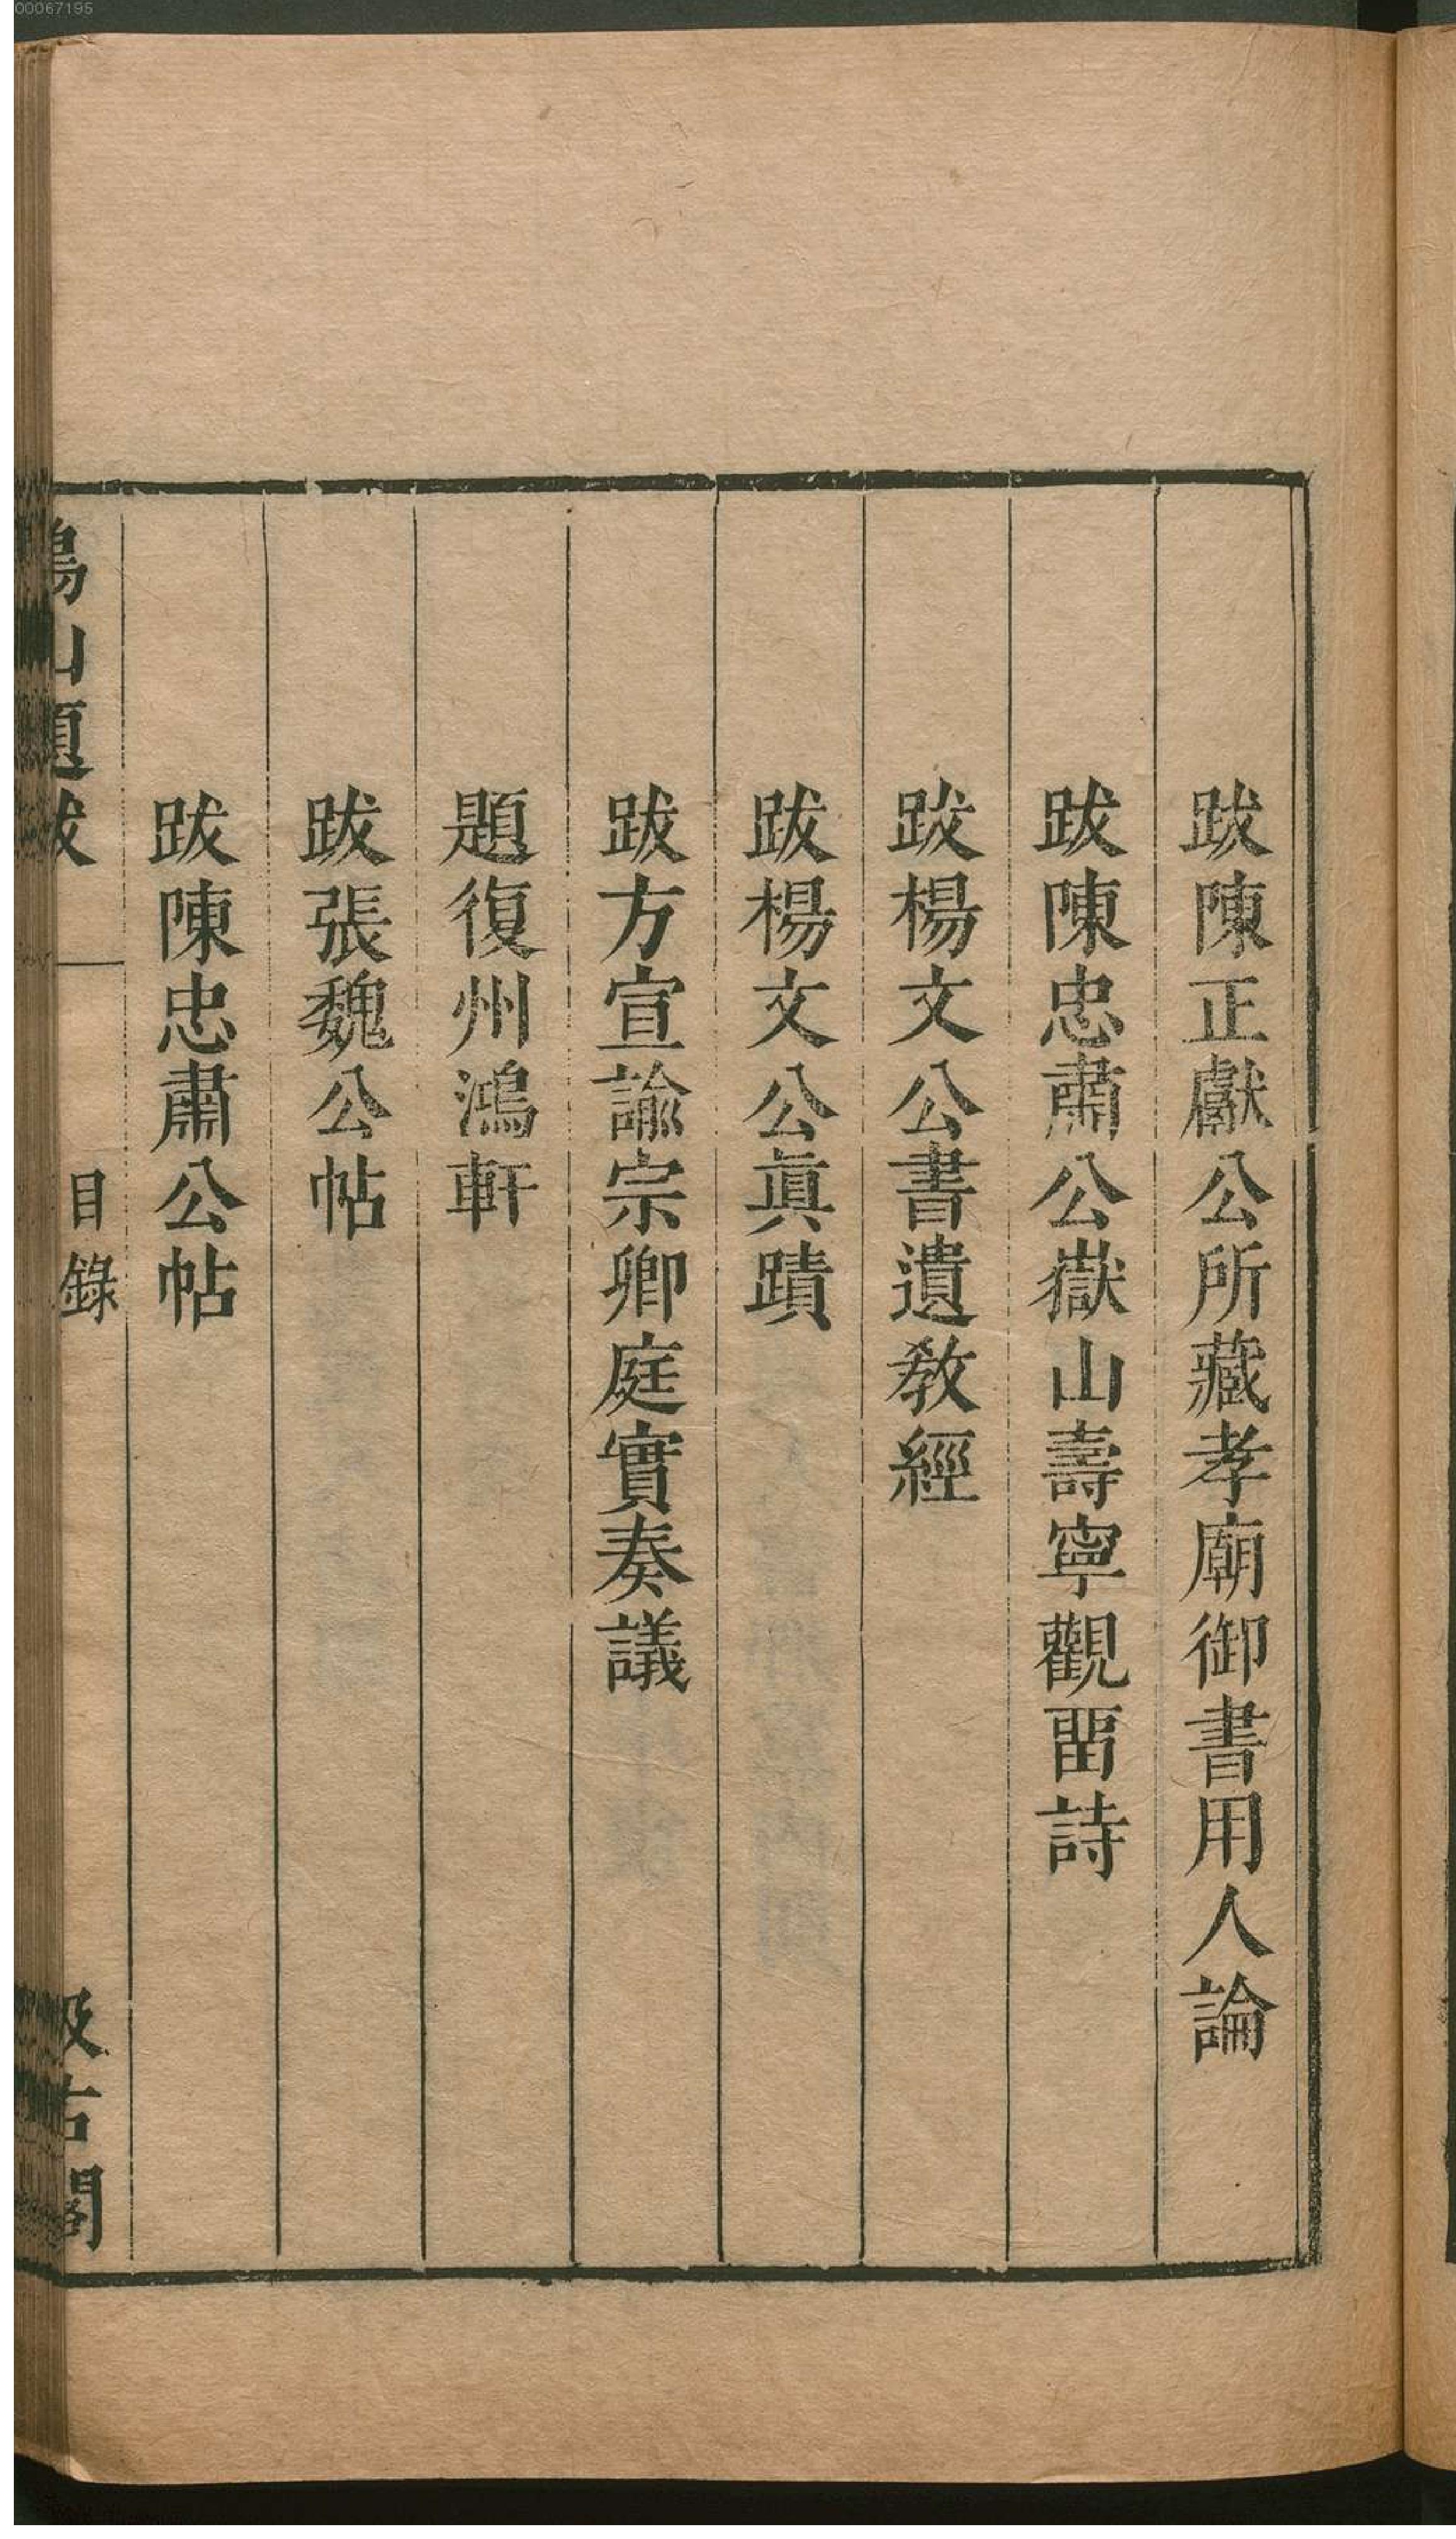 00067195
跋陳正獻公所藏孝廟御書用人論
跋陳忠肅公嶽山壽寧觀畱詩
跋楊文公書遺教經
跋楊文公眞蹟
跋方宣諭宗卿庭實奏議
題復州鴻軒
跋張魏公帖
跋陳忠肅公帖
山題跋 目錄 汲古閣